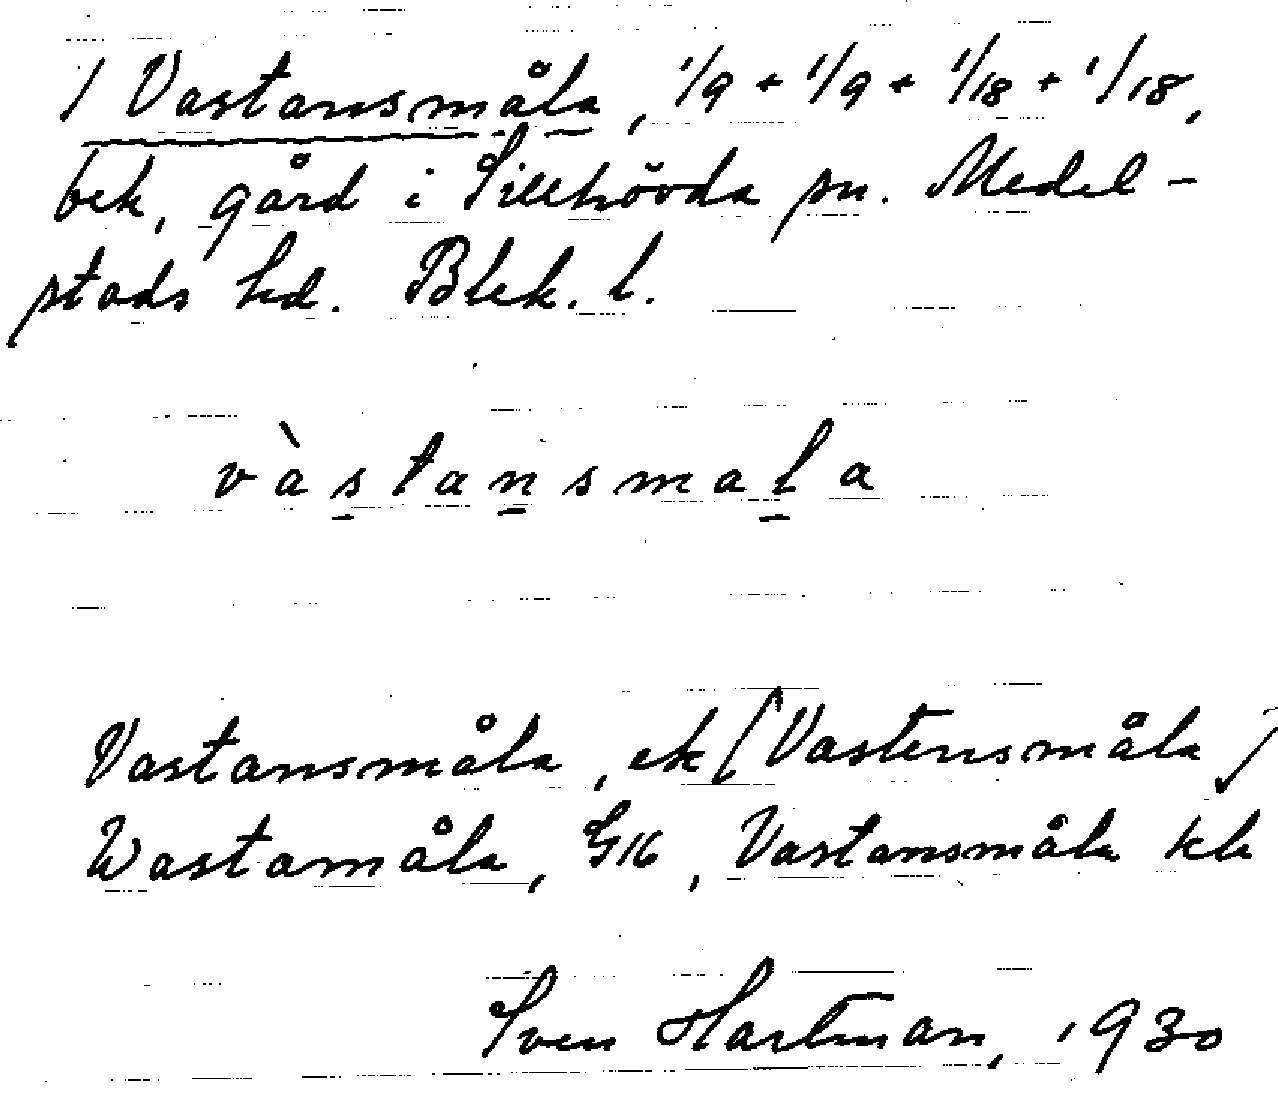 1 Vastansmåla, 1/9 + 1/9 + 1/18 + 1/18,
bek, gård i Sillhövda sn. Medel-
stads hd. Blek. l.
vàstansmala
Vastansmåla, ek [Vastensmåla]
Wastamåla, GK, Vastansmåla kb
Sven Hartman, 1930